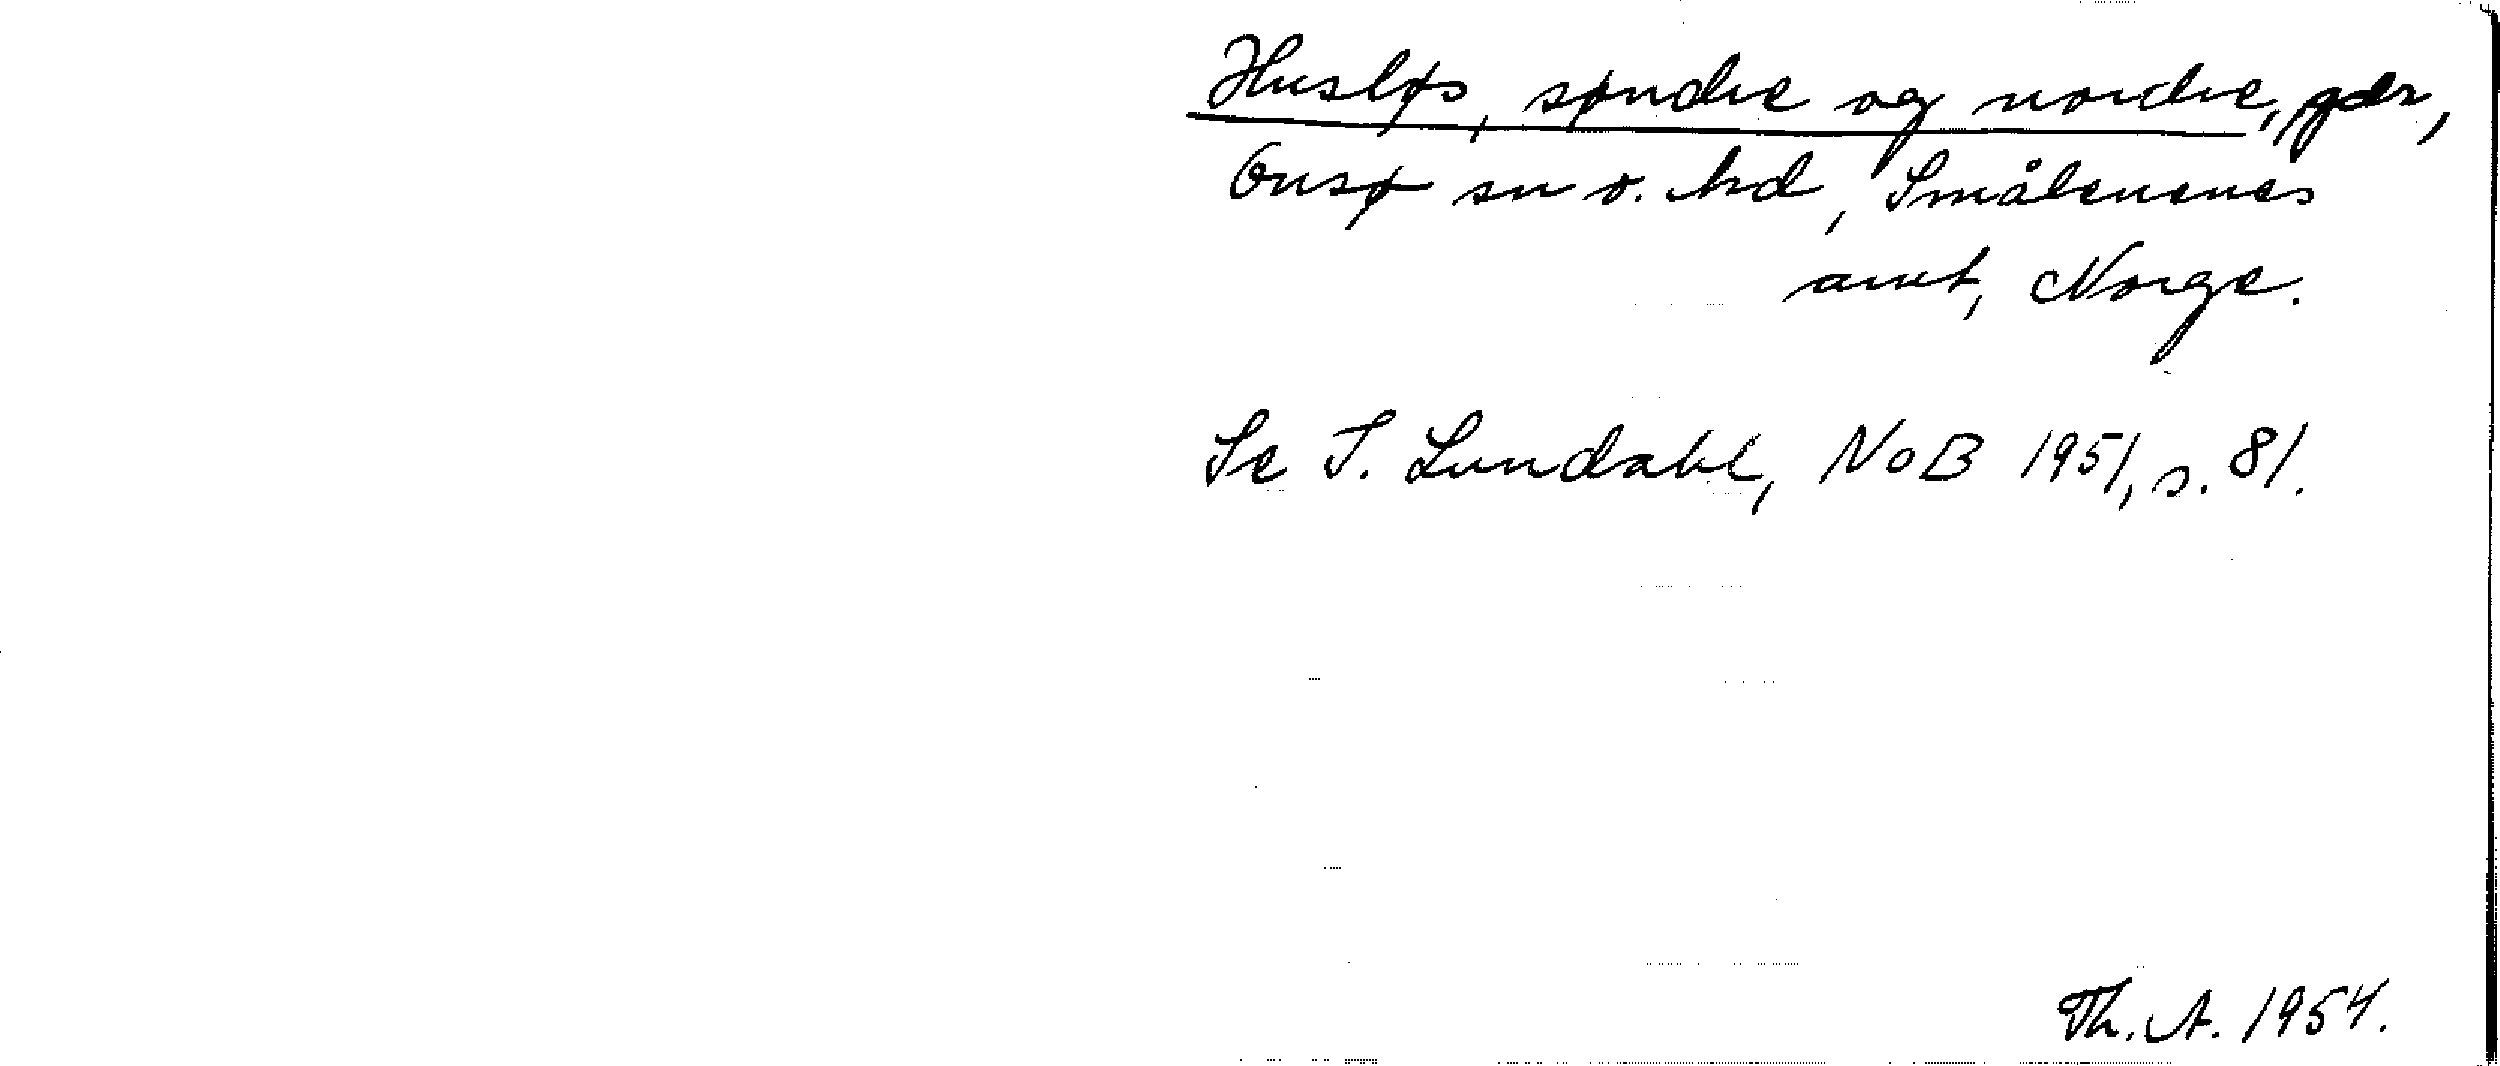 Husløs, søndre og nordre, gdr,
Onsø sn o. hd, Smålenenes
amt, Norge.
Se I. Lundahl, NoB 1951, s. 81.
Th. A. 1954.